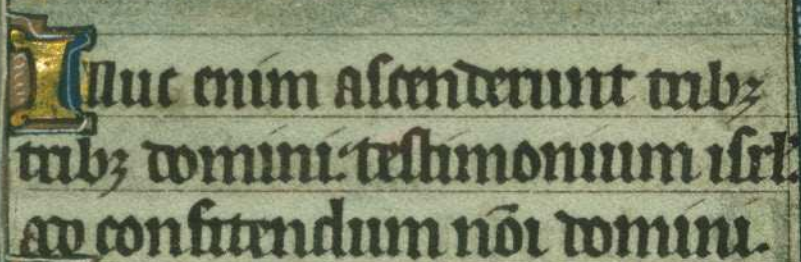 Illuc enim ascenderunt tribꝫ
tribꝫ domini. testimonium isrl.
ad confitendum nōi domini.